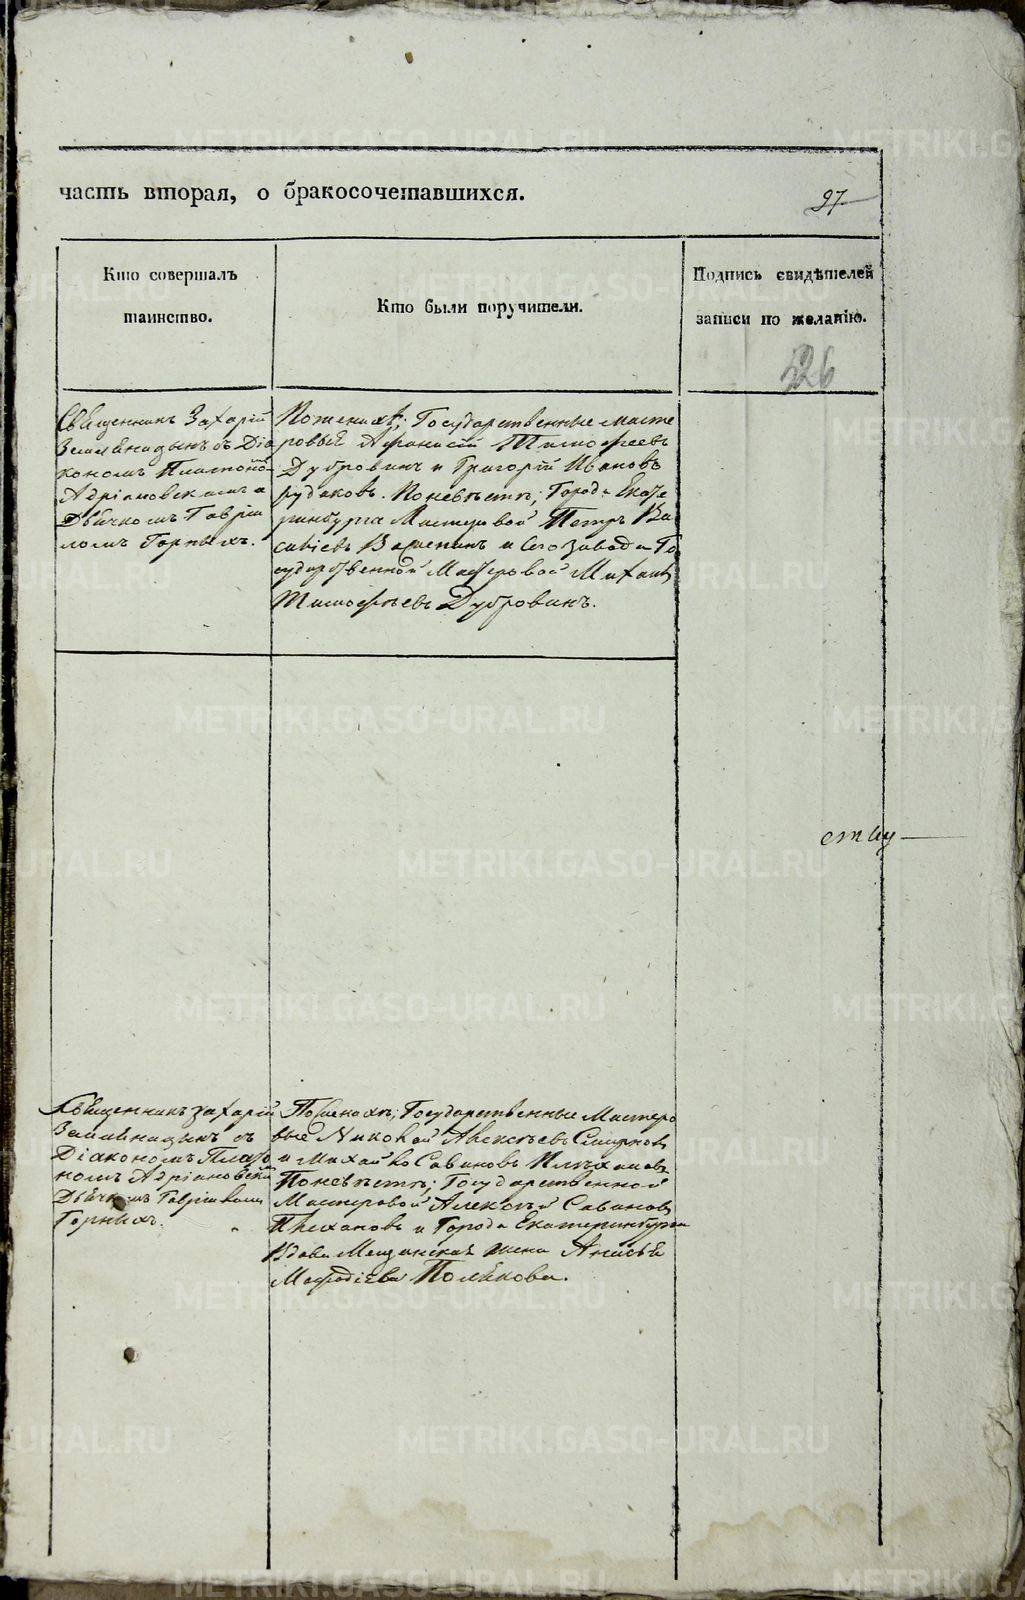 часть вторая, о бракосочетавшихся.
97
Кто совершалъ
таинство.
Кто были поручители.
Подпись свидѣтелей
записи по желанію.
526
Священникъ Захарій
Земляницынъ съ Діа
кономъ Платоно
Адріановскимъ и
Дьячкомъ Гавріи
ломъ Горныхъ.
Поженихѣ; Государственные масте
ровые Афанасій Тимофеевъ
Дубровинъ и Григорій Ивановъ
Рудаковъ. Поневѣстѣ; Города Екате
ринбурга Мастеровой Петръ Ва
сильевъ и Сего завода Го
сударственной Мастеровой Михаилъ
Тимофѣевъ Дубровинъ.
Священникъ Захарій
Земляницынъ съ
Діакономъ Плато
номъ Адріановски
Дьячкомъ Гавріиломъ
Горныхъ.
Поженихѣ; Государственные Мастеро
вые Николай Алексѣевъ Смирновъ
и Михайло Савиновъ Плехановъ
Поневѣстѣ; Государственной
Мастеровой Алексѣй Савиновъ
Плехановъ и Города Екатеринбурга
Вдова Мещанская жена Анисья
Мефодіева Полякова.
METRIKI.GASO-URAL.RU